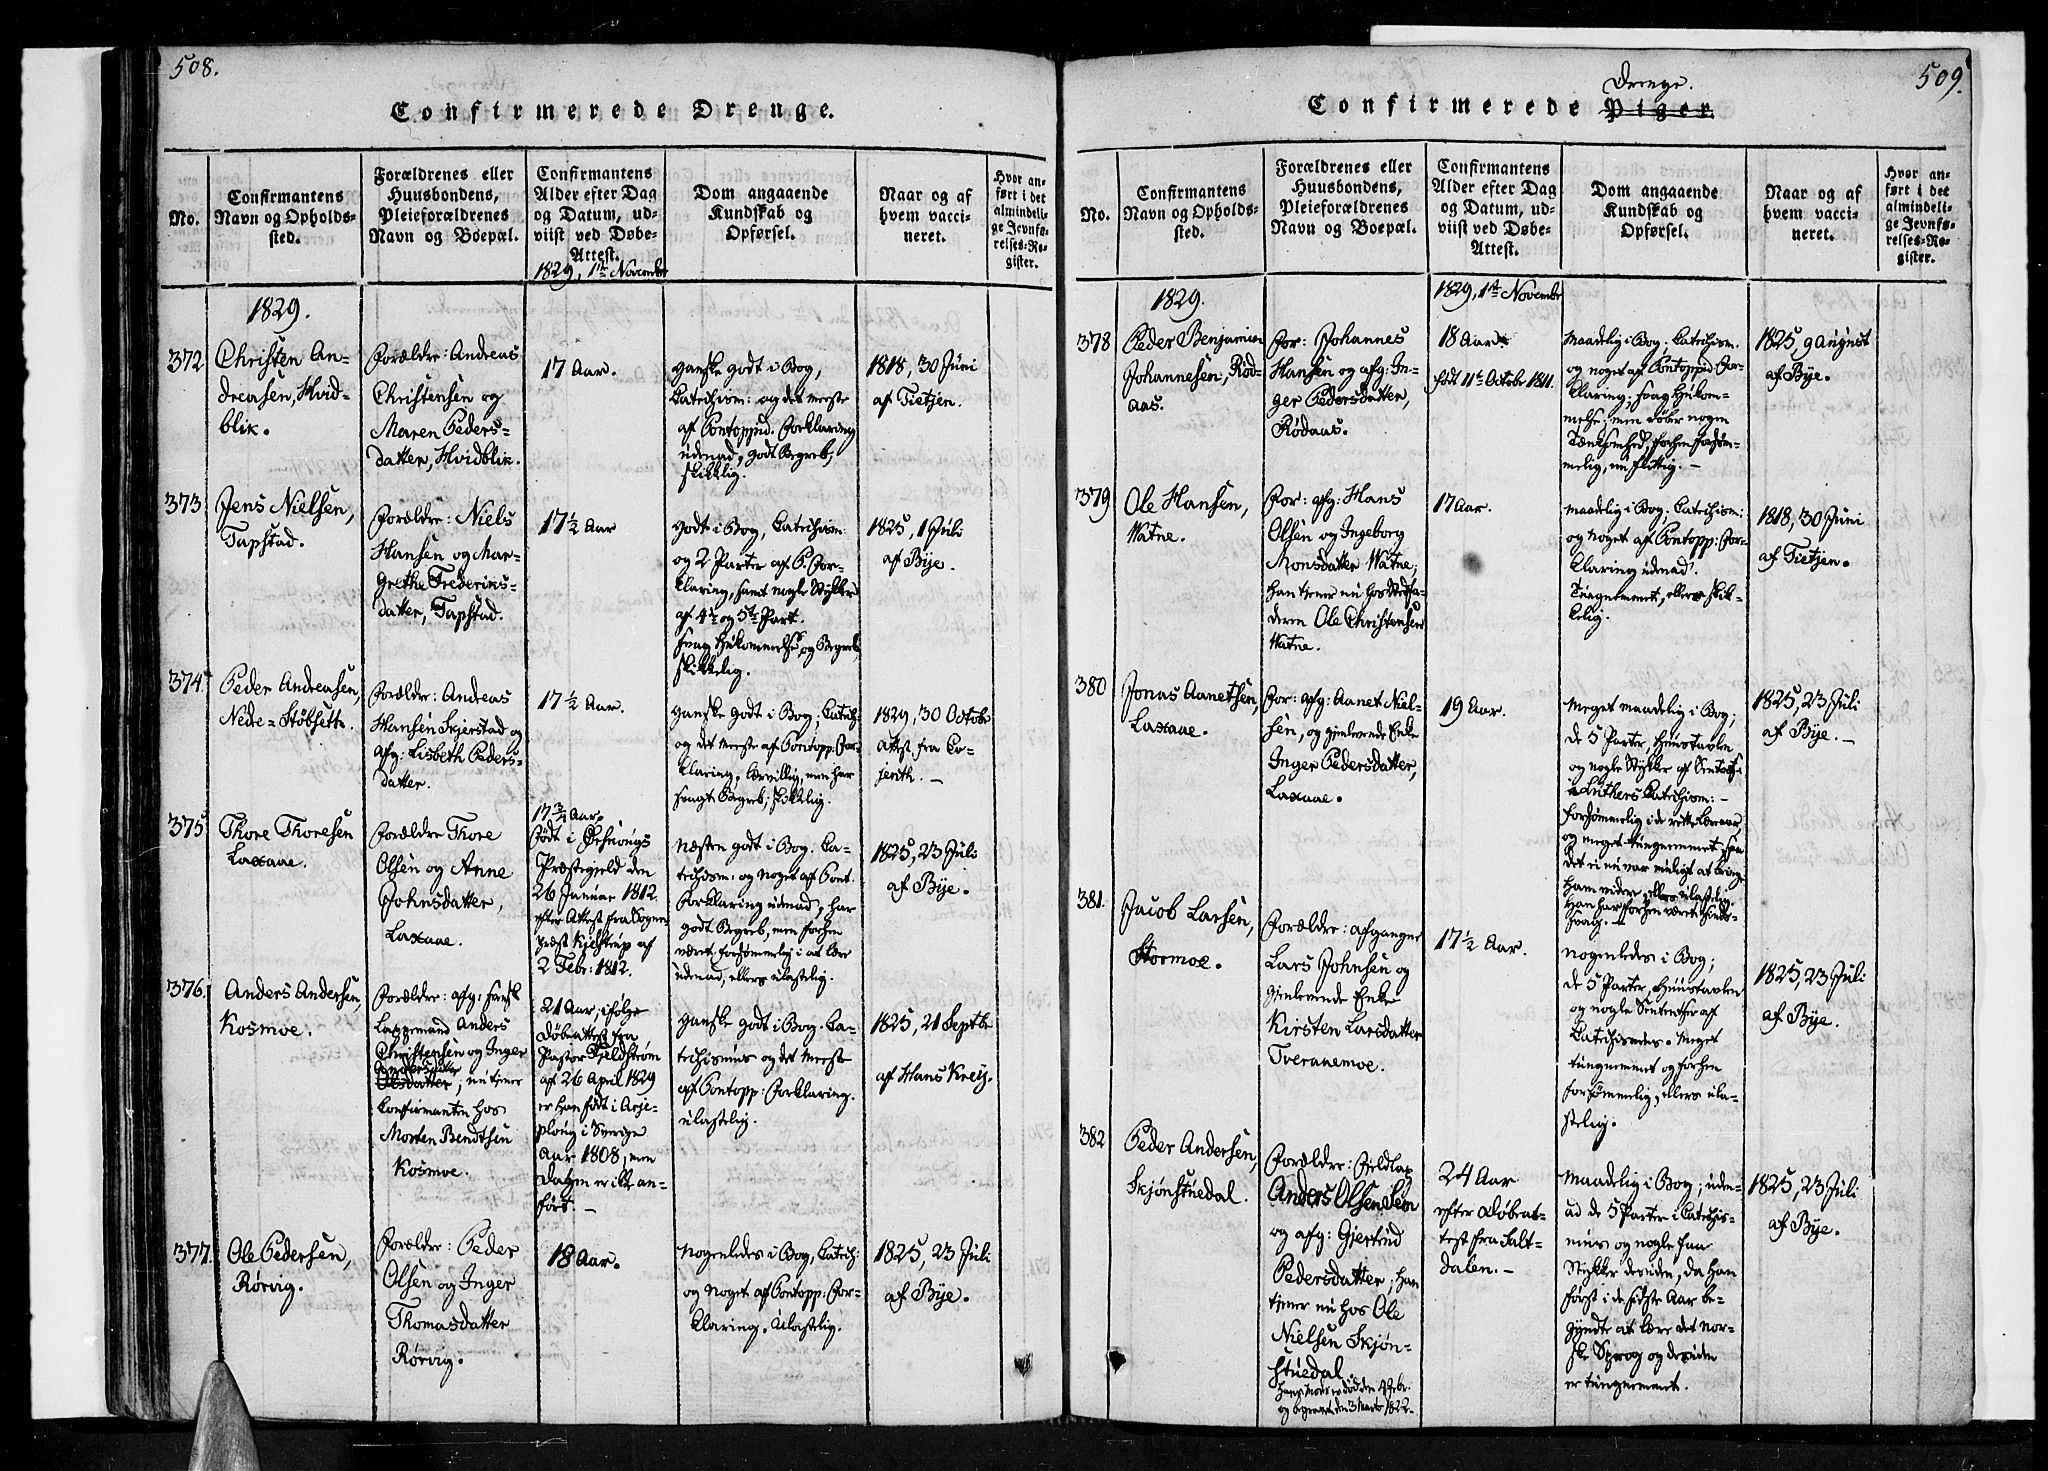 508.
Confirmerede Drenge.
No.
Confirmantens
Navn og Opholds-
sted.
Forældrenes eller
Huusbondens,
Pleieforældrenes
Navn og Boepæl.
Confirmantens
Alder efter Dag
og Datum, ud-
viist ved Døbe-
Attest.
Dom angaaende
Kundskab og
Opførsel.
Naar og af
hvem vacci-
neret.
Hvor an-
ført i det
almindeli-
ge Jevnfø-
relses-Re-
gister.
1829, 1te November
1829.
372
Christen An-
dreasen, Hvid-
blik.
Forældre: Andreas
Christensen og
Maren Peders-
datter, Hvidblik.
17 Aar.
Ganske godt i Bog,
Catechism: og det meeste
af Pontoppid. Forklaring
udenad, godt Begreb,
skikkelig.
1818, 30 Juni
af Tietjen.
373
Jens Nielsen,
Tapstad.
Forældre: Niels
Hansen og Mar-
grethe Frederiks-
datter, Tapstad.
17½ Aar
Godt i Bog, Catechism:
og 2 Parter af P. For-
klaring, samt nogle Stykker
af 4de og 5te Part.
svag Hukommelse og Begreb,
skikkelig.
1825, 1 Juli
af Bye.
374
Peder Andreasen,
Nede=Støbsetk.
Forældre: Andreas
Hansen Skjerstad og
afg: Lisbeth Peders-
datter.
17½ Aar.
Ganske godt i Bog; Catech:
og det meeste af Pontopp: For-
klaring, børvillig, men har
svagt Begreb; skikkelig.
1829, 30 Octobr
Attest fra Co-
jerith. —
375
Thore Thoresen
Laxaae.
Forældre Thore
Olsen og Anne
Johnsdatter,
Laxaae.
17¾ Aar
Født i Ørsnæs
Præstegjeld den
26 Januar 1812
efter Attest fra Sogne
præst Kjelstrup af
2 Febr: 1812.
Næsten godt i Bog. Ca-
techism: og noget af Pont.
Forklaring udenad, har
godt Begreb, men forhen
været forsømmelig i at lære
udenad, ellers ulastelig.
1825, 23 Juli
af Bye.
376
Anders Andersen,
Kosmoe.
Forældre: afg: svensk
Lappemand Anders
Christensen og Inger
Andersdatter
Olsdatter; nu tjener
Confirmanten hos
Morten Bendtsen
Kosmoe.
21 Aar, ifølge
Døbeattest fra
Pastor Fjeldstrøm
af 26 April 1829
er han født i Arje-
ploug i Sverige
Aar 1808, men
Dagen er ikke an-
ført. —
Ganske godt i Bog. Ca-
techismus og det meeste
af Pontopp: Forklaring.
ulastelig.
1825, 21 Septbr
af Hans Kreij.
377.
Ole Pedersen,
Rørvig.
Forældre: Peder
Olsen og Inger
Thomasdatter
Rørvig.
18 Aar.
Nogenledes i Bog, Catech:
og noget af Pontopp: For-
klaring. Ulastelig.
1825, 23 Juli
af Bye.
509.
Drenge.
Confirmerede Piger.
No.
Confirmantens
Navn og Opholds-
sted.
Forældrenes eller
Huusbondens,
Pleieforældrenes
Navn og Boepæl.
Confirmantens
Alder efter Dag
og Datum, ud-
viist ved Døbe-
Attest.
Dom angaaende
Kundskab og
Opførsel.
Naar og af
hvem vacci-
neret.
Hvor an-
ført i det
almindeli-
ge Jevnfø-
relses-Re-
gister.
1829.
1829, 1ste Novembr
378
Peder Benjamin
Johannesen, Rød-
aas.
For: Johannes
Hansen og afg: In-
ger Pedersdatter,
Rødaas.
18 Aar
født 11te Octobr 1811.
Maadelig i Bog, Catechism.
og noget af Pontoppid. For-
klaring; svag Hukom-
melse; men røber nogen
Tænksomhed, forhen forsøm-
melig, nu flittig. —
1825, 9 August
af Bye.
379
Ole Hansen,
Watne.
For: afg: Hans
Olsen og Ingeborg
Monsdatter Watne;
han tjener nu hos Stedfa-
deren Ole Christensen
Watne.
17 Aar.
Maadelig i Bog; Catechism:
og noget af Pontopp: For-
klaring udenad.
Tungnemmet, ellers skik-
kelig.
1818, 30 Juni
af Tietjen.
380
Jonas Aanetsen,
Laxaae.
For: afg: Aanet Niel-
sen, og gjenlevende Enke
Inger Pedersdatter,
Laxaae.
19 Aar.
Meget maadelig i Bog;
de 5 Parter, Huustavlen
og nogle Stykker af
i Luthers Catechism: —
forsømmelig i de rette Læreaar,
og meget tungnemmet, saa
det ei nu var mueligt at bringe
ham videre; ellers ulastelig.
Han har forhen været sinds-
svag. —
1825, 23 Juli
af Bye. —
381.
Jacob Larsen,
Stormoe.
Forældre: afgangne
Lars Johnsen og
gjenlevende Enke
Kirsten Larsdatter
Tveraaemoe.
17½ Aar.
Nogenledes i Bog;
de 5 Parter, Huustavlen
og nogle Sentenser af
Catechismus. Meget
tungnemmet og forhen
forsømmelig, ellers ula-
stelig.
1825, 23 Juli
af Bye.
382
Peder Andersen,
Skjønstuedal.
Forældre: Fjeldlap
Anders Olsen Leon
og afg: Gjertrud
Pedersdatter; han
tjener nu hos Ole
Nielsen Skjøn-
stuedal
Hans Moder er død den Febr.
og begravet den 3 Marts 1822.
24 Aar
efter Døbeat-
test fra Salt-
dalen. —
Maadelig i Bog; uden-
ad de 5 Parter i Catechis-
mus og nogle faa
Stykker desuden, da han
først i de sidste Aar be-
gyndte at lære det Nor-
ske Sprog og desuden
er tungnemmet.
1825, 23 Juli
af Bye.